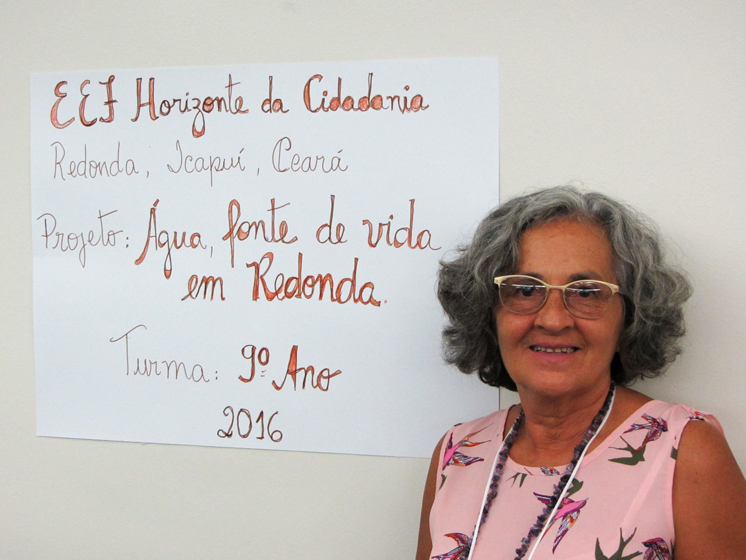 EEF Horizonte da Cidadania
Redonda, Icapuí, Ceará
Projeto: Água, fonte de vida
em Redonda.
Turma: 9º Ano
2016